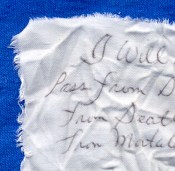 I Will
Pass from D
From Death
From Mortal